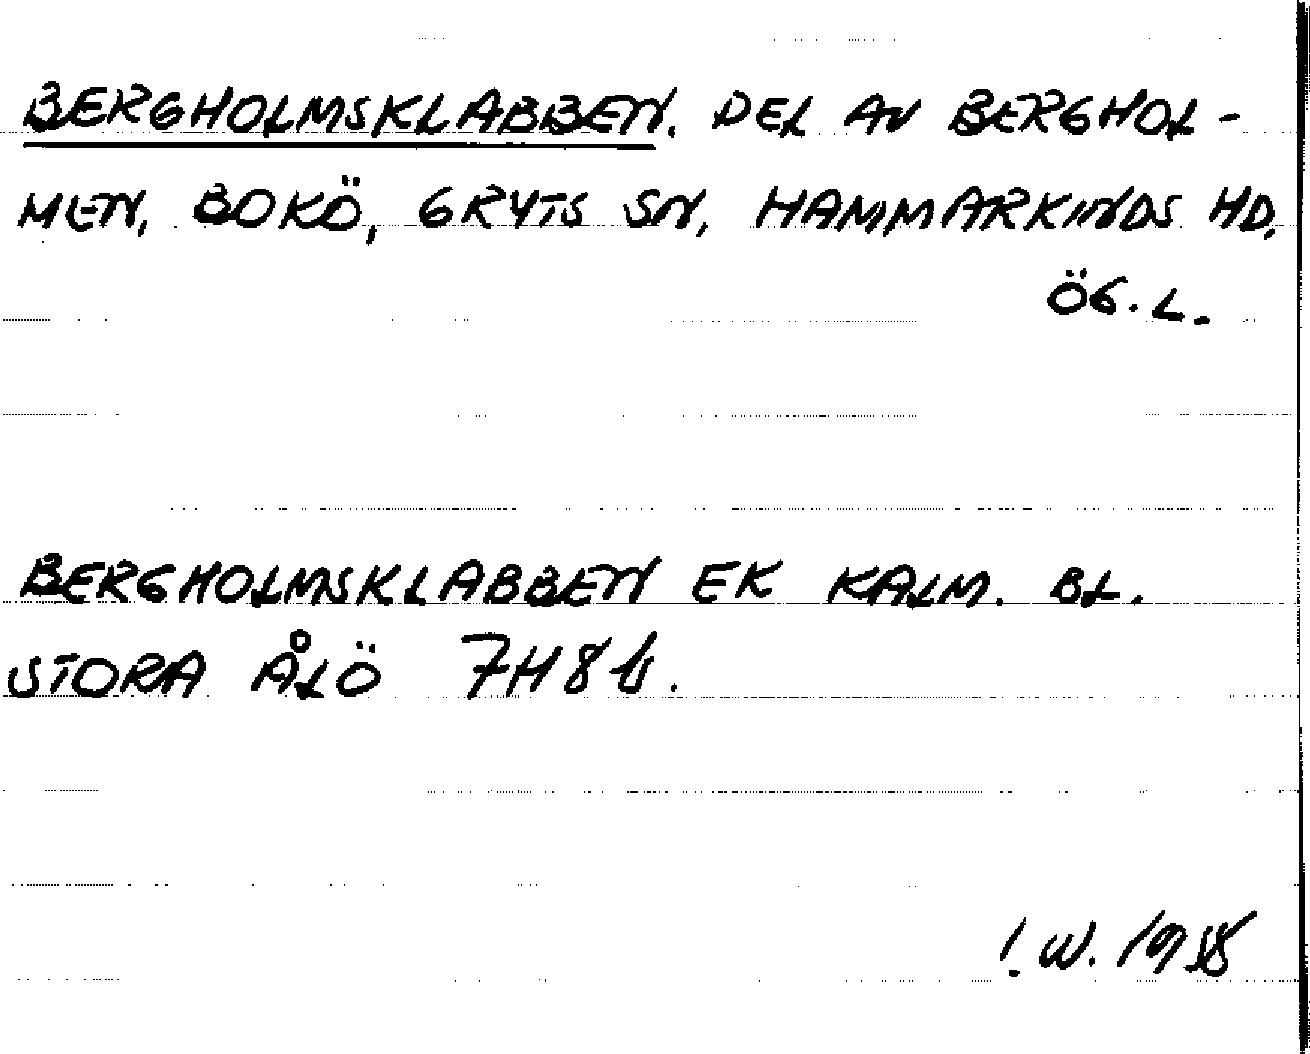 BERGHOLMSKLABBEN. DEL AV BERGHOL-
MEN, BOKÖ, GRYTS SN, HAMMARKINDS HD.
ÖG. L.
BERGHOLMSKLABBEN EK KALM. BL.
STORA ÅLÖ 7H8b.
I. W. 1958